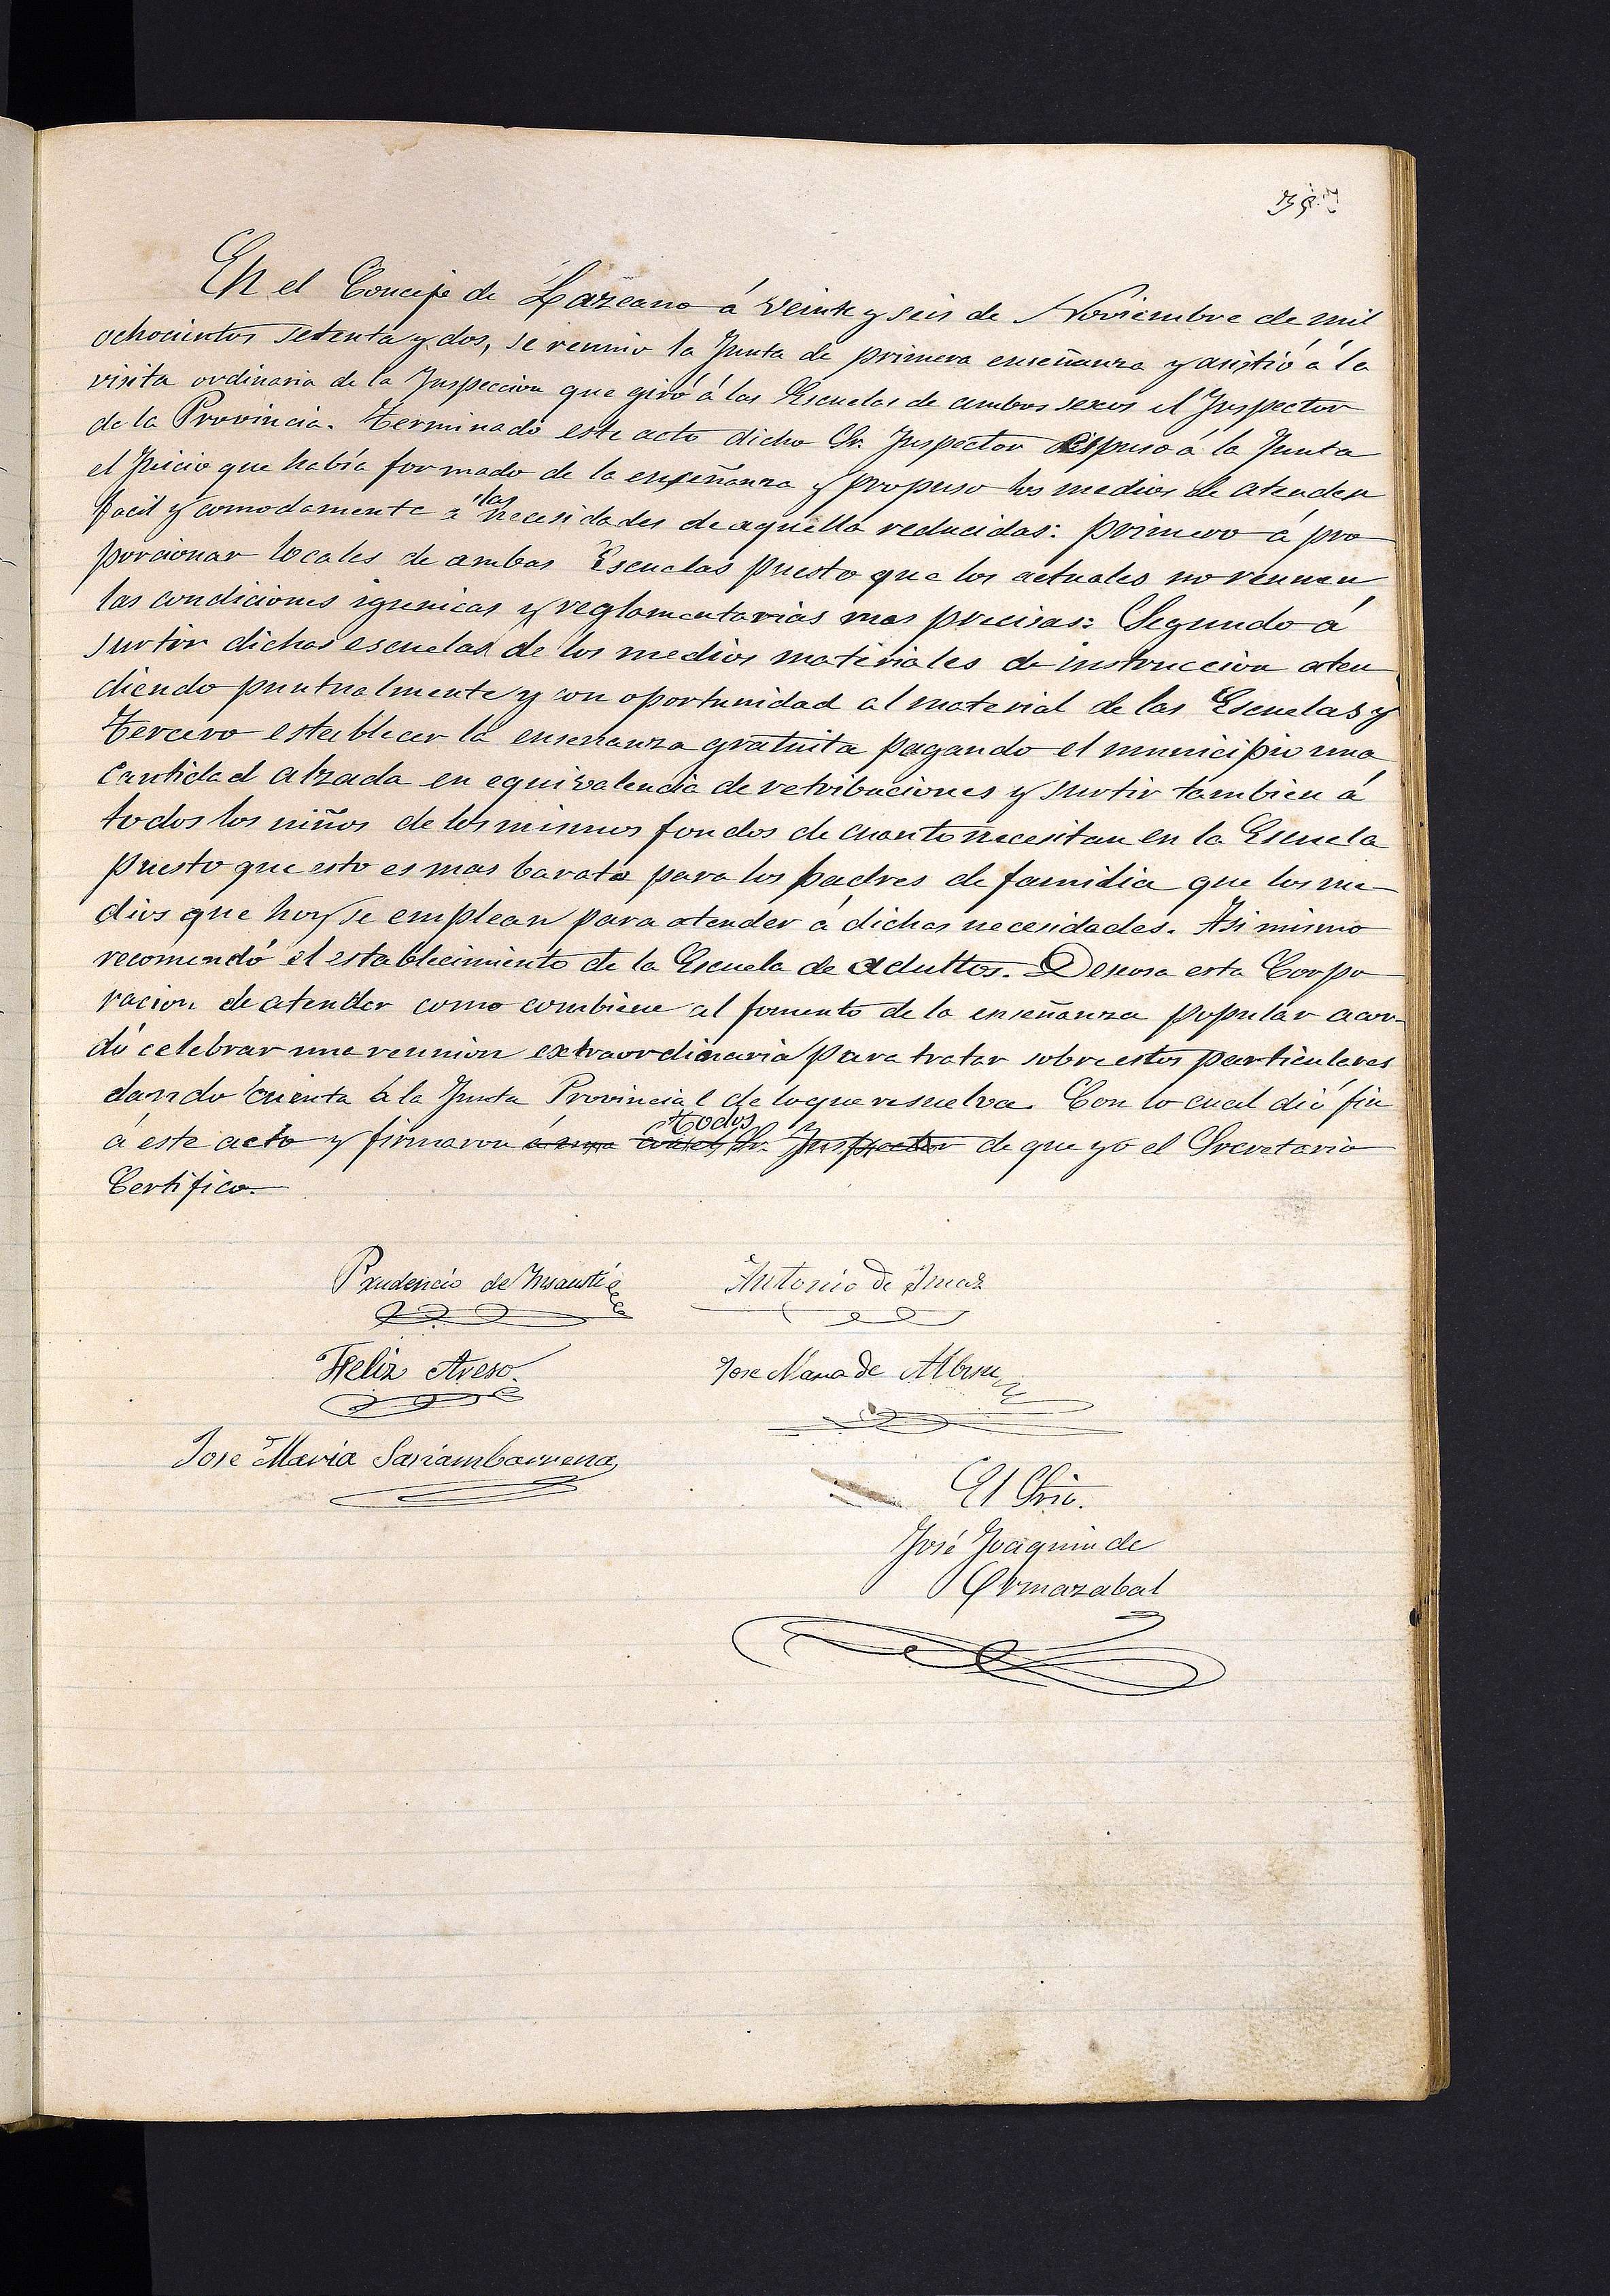 En el Concejo de Lazcano á veinte y seis de Noviembre de mil
ochocientos setenta y dos, se reunio la Junta de primera enseñanza y asistió á la
visita ordinaria de la Inspeccion que giró á las Escuelas de ambos sexos el Inspector
de la Provincia. Terminado este acto dicho Sr. Inspector espuso á la Junta
el Juicio que había formado de la enseñanza y propuso los medios de atender
facil y comodamente a las necesidades de aquella reducidas: primero á pro
porcionar locales de ambas Escuelas puesto que los actuales no reunen
las condiciones igienicas y reglamentarias mas precisas: Segundo á
surtir dichas escuelas de los medios materiales de instruccion aten
diendo puntualmente y con oportunidad al material de las Escuelas y
tercero establecer la enseñanza gratuita pagando el municipio una
cantidad alzada en equivalencia de retribuciones y surtir tambien á
todos los niños de los mismos fondos de cuanto necesitan en la Escuela
puesto que esto es mas barato para los padres de familia que los me
dios que hoy se emplean para atender á dichas necesidades. Asi mismo
recomendó el establecimiento de la Escuela de adultos. Deseosa esta Corpo
racion de atender como combiene al fomento de la enseñanza popular acor-
dó celebrar una reunion extraordinaria para tratar sobre estos particulares
dando cuenta á la Junta Provincial de lo que resuelva. Con lo cual dió fin
á este acto y firmaron todos con el Sr. Inspector de que yo el Secretario
Certifico.
Prudencio de Antonio de Imaz
Feliz Jose Maria de
Jose Maria Sariambarrena
El Srio.
José Joaquin de
Ormazabal